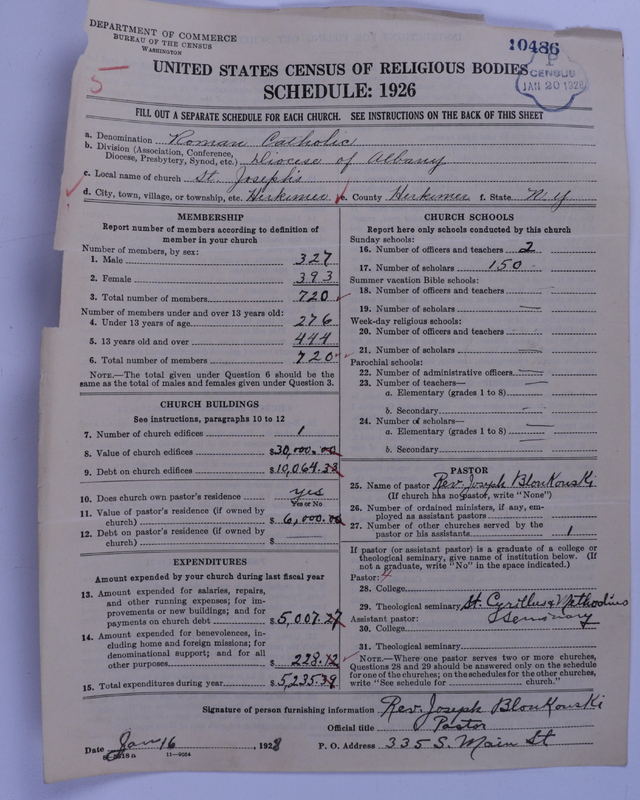 DEPARTMENT OF COMMERCE
BUREAU OF THE CENSUS
WASHINGTON
10486
P
CENSUS
JAN 20 1928
5
UNITED STATES CENSUS OF RELIGIOUS BODIES
SCHEDULE: 1926
FILL OUT A SEPARATE SCHEDULE FOR EACH CHURCH. SEE INSTRUCTIONS ON THE BACK OF THIS SHEET
a. Denomination Roman Catholic
b. Division (Association, Conference, Diocese, Presbytery, Synod, etc.) Diocese of Albany
c. Local name of church St. Joseph's
d. City, town, village, or township, etc. Herkimer e. County Herkimer f. State N.Y
MEMBERSHIP
Report number of members according to definition of
member in your church
Number of members, by sex:
1. Male 327
2. Female 393
3. Total number of members 720
Number of members under and over 13 years old:
4. Under 13 years of age 276
5. 13 years old and over 444
6. Total number of members 720
NOTE.—The total given under Question 6 should be
same as the total of males and females given under Question 3.
CHURCH BUILDINGS
See instructions, paragraphs 10 to 12
7. Number of church edifices 1
8. Value of church edifices $30,000.00
9. Debt on church edifices $10,064.33
10. Does church own pastor's residence yes
Yes or No
11. Value of pastor's residence (if owned by
church) $6,000.00
12. Debt on pastor's residence (if owned by
church) $
EXPENDITURES
Amount expended by your church during last fiscal year
13. Amount expended for salaries, repairs,
and other running expenses; for im-
provements or new buildings; and for
payments on church debt $5,007.27
14. Amount expended for benevolences, in-
cluding home and foreign missions; for
denominational support; and for all
other purposes $228.12
15. Total expenditures during year $5,235.39
CHURCH SCHOOLS
Report here only schools conducted by this church
Sunday schools:
16. Number of officers and teachers 2
17. Number of scholars 150
Summer vacation Bible schools:
18. Number of officers and teachers
19. Number of scholars
Week-day religious schools:
20. Number of officers and teachers
21. Number of scholars
Parochial schools:
22. Number of administrative officers
23. Number of teachers—
a. Elementary (grades 1 to 8)
b. Secondary
24. Number of scholars—
a. Elementary (grades 1 to 8)
b. Secondary
PASTOR
25. Name of pastor Rev. Joseph Blonkowski
(If church has no pastor, write "None")
26. Number of ordained ministers, if any, em-
ployed as assistant pastors
27. Number of other churches served by the
pastor or his assistants 1
If pastor (or assistant pastor) is a graduate of a college or
theological seminary, give name of institution below. (If
not a graduate, write "No" in the space indicated.)
Pastor:
28. College
29. Theological seminary St. Cyrillus & Methodius
Seminary
Assistant pastor:
30. College
31. Theological seminary
NOTE.—Where one pastor serves two or more churches,
Questions 28 and 29 should be answered only on the schedule
for one of the churches; on the schedules for the other churches,
write "See schedule for church."
Signature of person furnishing information Rev. Joseph Blonkowski
Official title Pastor
Date Jan 16, 1928 P. O. Address 335 S. Main St
11—9664